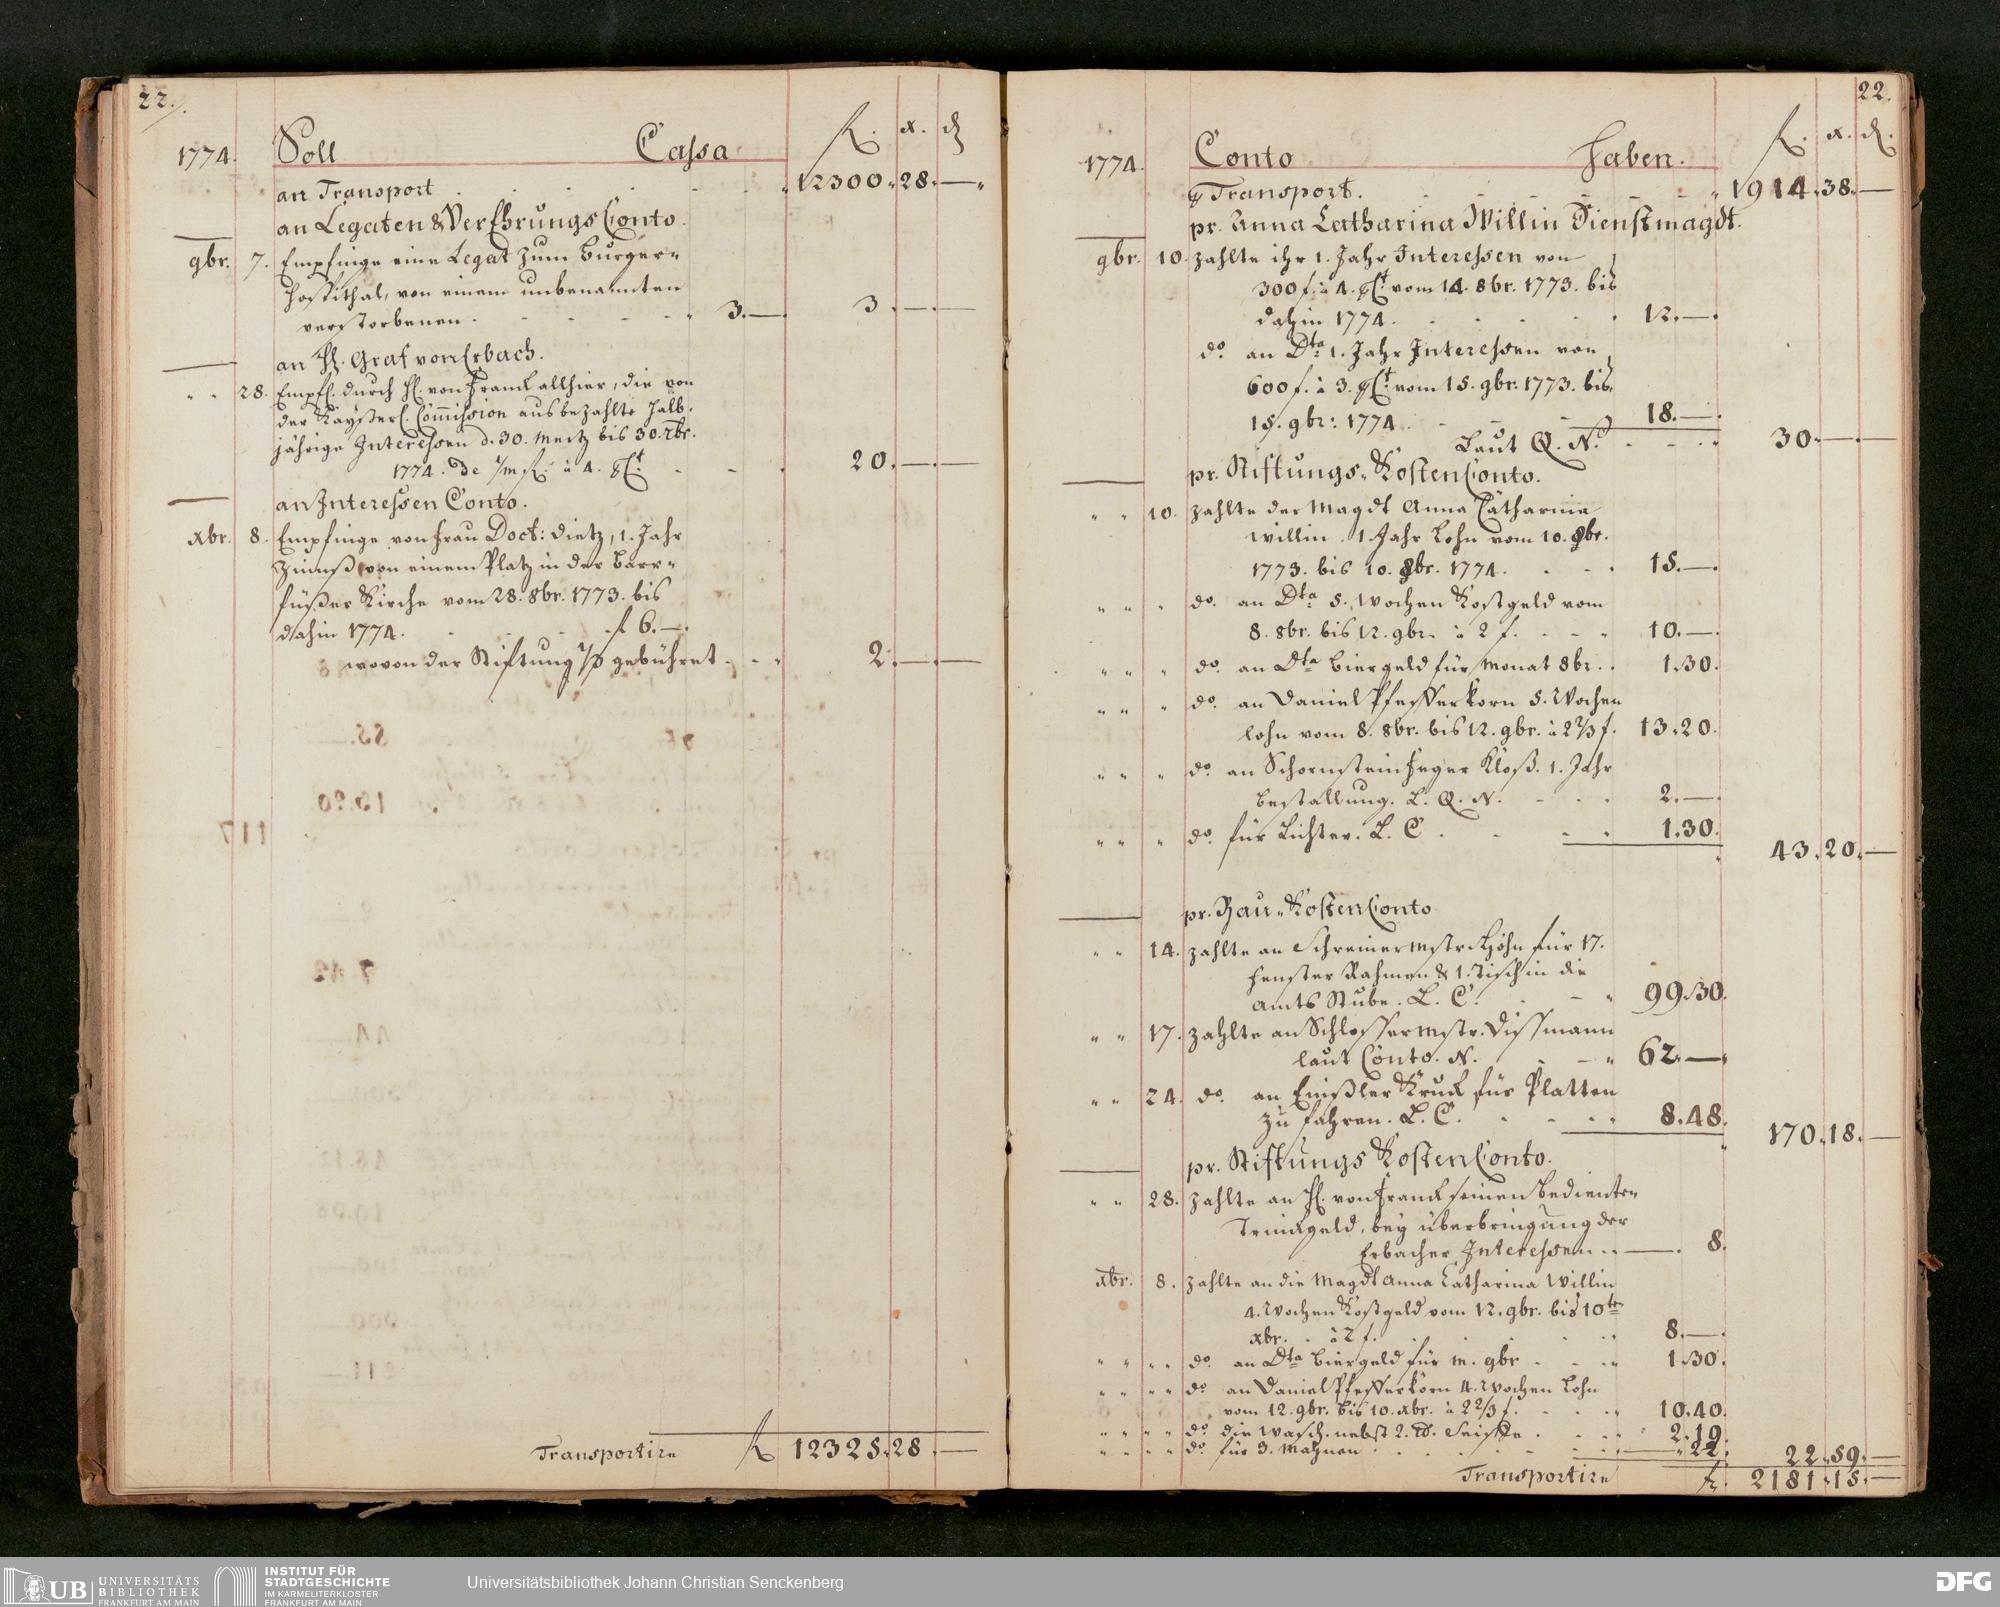 22.
1774. Soll Cassa fl. x. d
an Transport . . . . . 12300.28.—
an Legaten & Verehrungs Conto.
9br. 7. Empfinge eine Legat zum Burger-
hospithal, von einem unbenannten
verstorbenen . . . . 3.— 3.—.—
an H. Graf von Erbach.
" " 28. Empf. durch H. von Franck allhier, die von
der Kayßerl. Commission ausbezahlte halb-
jährige Interessen d. 30. Mertz bis 30. 7br.
1774. de 1/m fl. à 4. pCt. - - . 20.—.—
an Interessen Conto.
xbr. 8. Empfinge von Frau Doct: Dietz, 1. Jahr
Zinnß von einem Platz in der Barr-
füßer Kirche vom 28. 8br. 1773. bis
dahin 1774. . . . fl 6.—.
wovon der Stiftung 1/3 gebühret . . . 2.—.—
Transportire fl 12325.28.—
22.
1774. Conto Haben. fl. x. d.
pr Transport. . . . . 1914.38.—
pr. Anna Catharina Willin Dienstmagdt.
9br. 10. zahlte ihr 1. Jahr Interessen von
300 f. à 4. pCt. vom 14. 8br. 1773. bis
dahin 1774. . . . . 12.—.
do. an Dta 1. Jahr Interessen von
600 f. à 3. pCt. vom 15. 9br. 1773. bis
15. 9br: 1774. . . . 18.—.
Laut Q. N. - - - 30.—.—
pr. Stiftungs-Kosten Conto.
" " 10. zahlte der Magdt Anna Catharina
Willin 1. Jahr Lohn vom 10. 9br.
1773. bis 10. 9br. 1774. . . . 15.—.
" " " do. an Dta 5. Wochen Kostgeld vom
8. 8br. bis 12. 9br. à 2 f. - - " 10.—.
" " " do. an Dta biergeld für Monat 8br. . 1.30.
" " " do. an Daniel Pfefferkorn 5. Wochen
lohn vom 8. 8br. bis 12. 9br. à 2 2/3 f. 13.20.
" " " do. an Schornsteinfeger Kloß. 1. Jahr
bestallung. L. Q. N. - . . 2.—.
" " " do. für Lichter. L. C . - - . 1.30.
43.20.—
pr. Bau-Kosten Conto
" " 14. zahlte an Schreinermstr. Höhn für 17.
Fenster Rahmen & 1. Tisch in die
Amts Stube. L. C. . - " 99.30.
" " 17. zahlte an Schlossermstr. Dissmann
laut Conto. N. . . - " 62.—.
" " 24. do. an Kruck für Platten
zu fahren. L. C. . - . . 8.48.
170.18.—
pr. Stiftungs Kosten Conto.
" " 28. zahlte an H. von Franck seinen Bedienten
Trinkgeld, bey überbringung der
Erbacher Interessen . . —. 8.
xbr. 8. zahlte an die Magdt Anna Catharina Willin
4. Wochen Kostgeld vom 12. 9br. bis 10ten
xbr. . à 2 f. . . . 8.—.
" " " " do. an Dta biergeld für M. 9br - - . 1.30.
" " " " do. an Daniel Pfefferkorn 4. Wochen Lohn
vom 12. 9br. bis 10. xbr. à 2 2/3 f. . . 10.40.
" " " " do. die Wasch. nebst 2. lb. Seiffe . . 2.19.
" " " " do. für 3. Mahnen . . . . —.22. 22.59.—
Transportire f. 2181.15.—
UB UNIVERSITÄTS
BIBLIOTHEK
FRANKFURT AM MAIN
INSTITUT FÜR
STADTGESCHICHTE
IM KARMELITERKLOSTER
FRANKFURT AM MAIN
Universitätsbibliothek Johann Christian Senckenberg
DFG